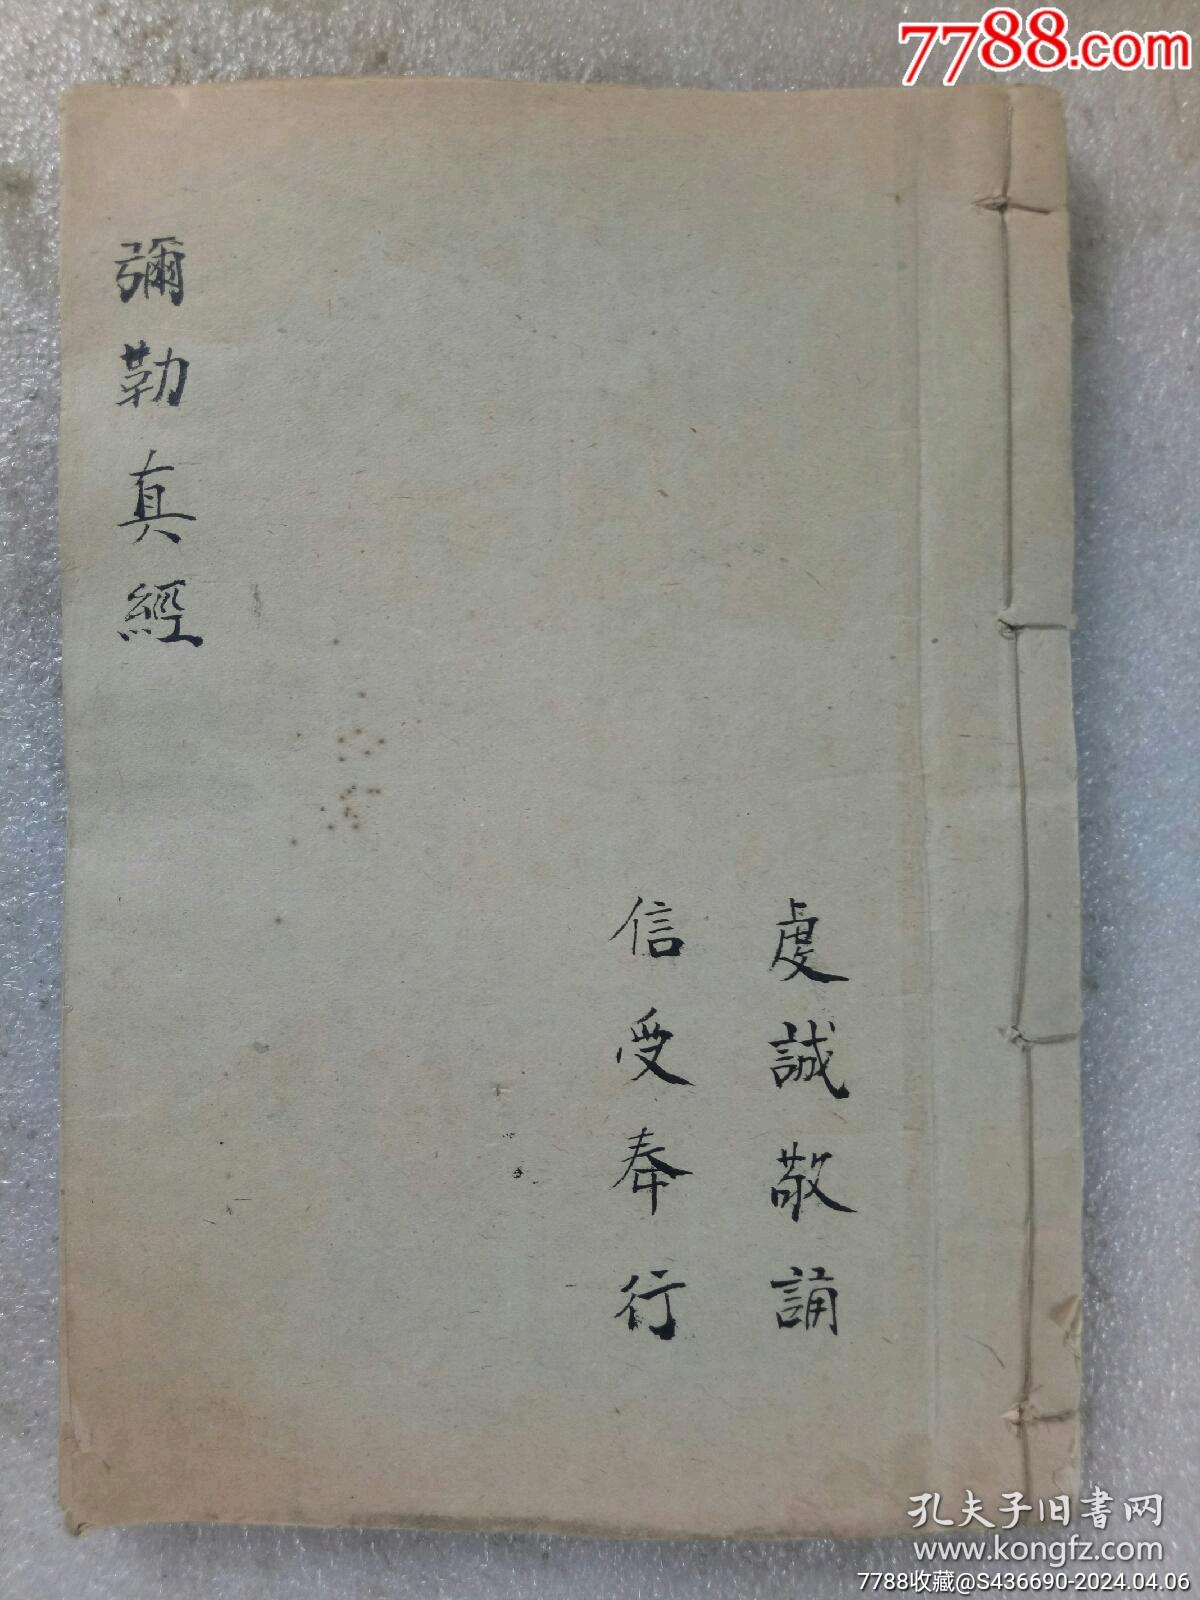 7788.com
彌勒真經
虔誠敬誦
信受奉行
孔夫子旧书网
www.kongfz.com
7788收藏@S436690-2024.04.06